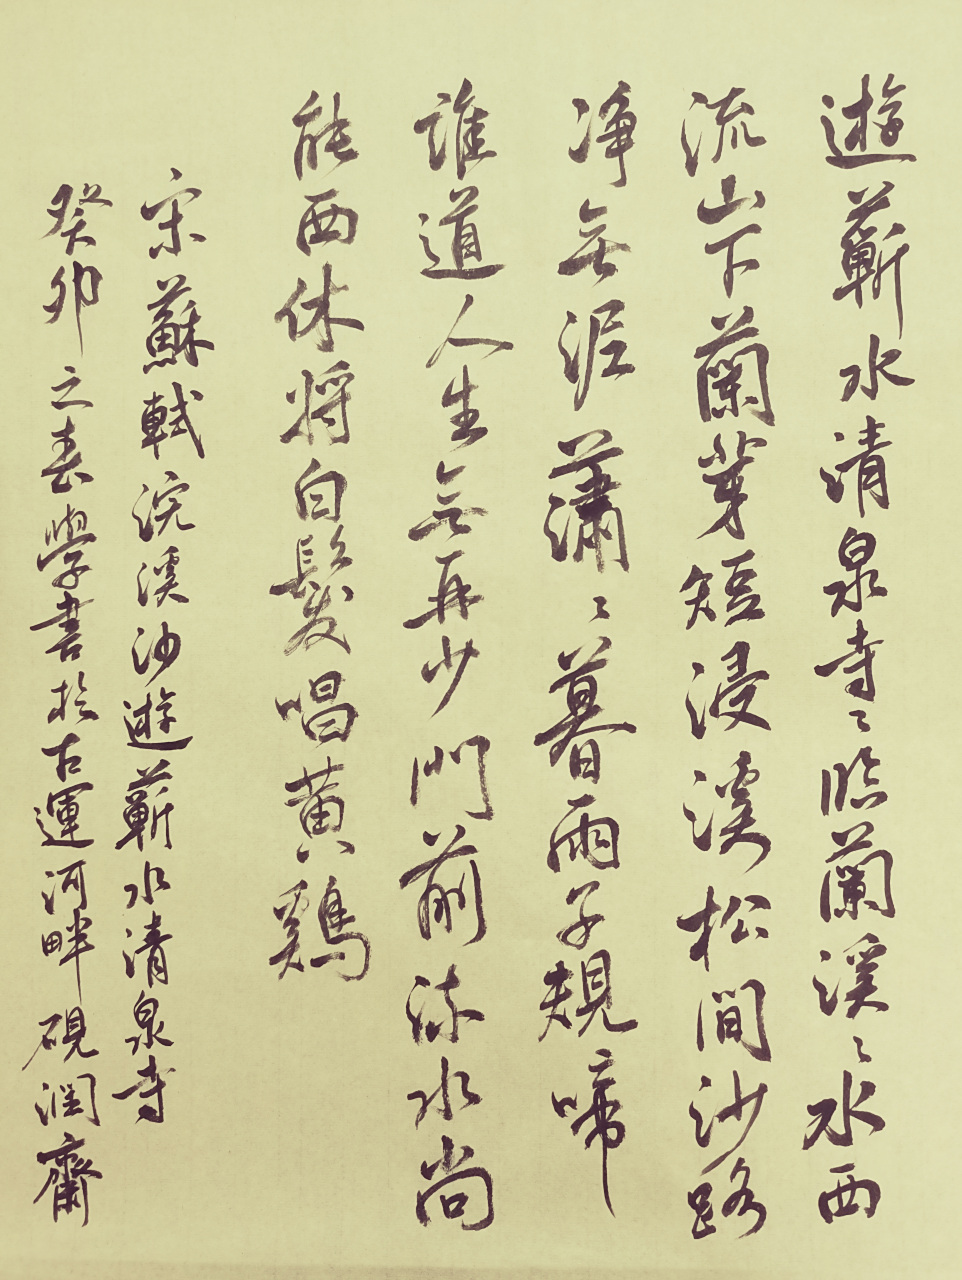 遊蘄水清泉寺〻臨蘭溪〻水西
流山下蘭芽短浸溪松間沙路
淨無泥蕭〻暮雨子規啼
誰道人生無再少門前流水尚
能西休將白髮唱黃鷄
宋蘇軾浣溪沙遊蘄水清泉寺
癸卯之春學書於古運河畔硯潤齋